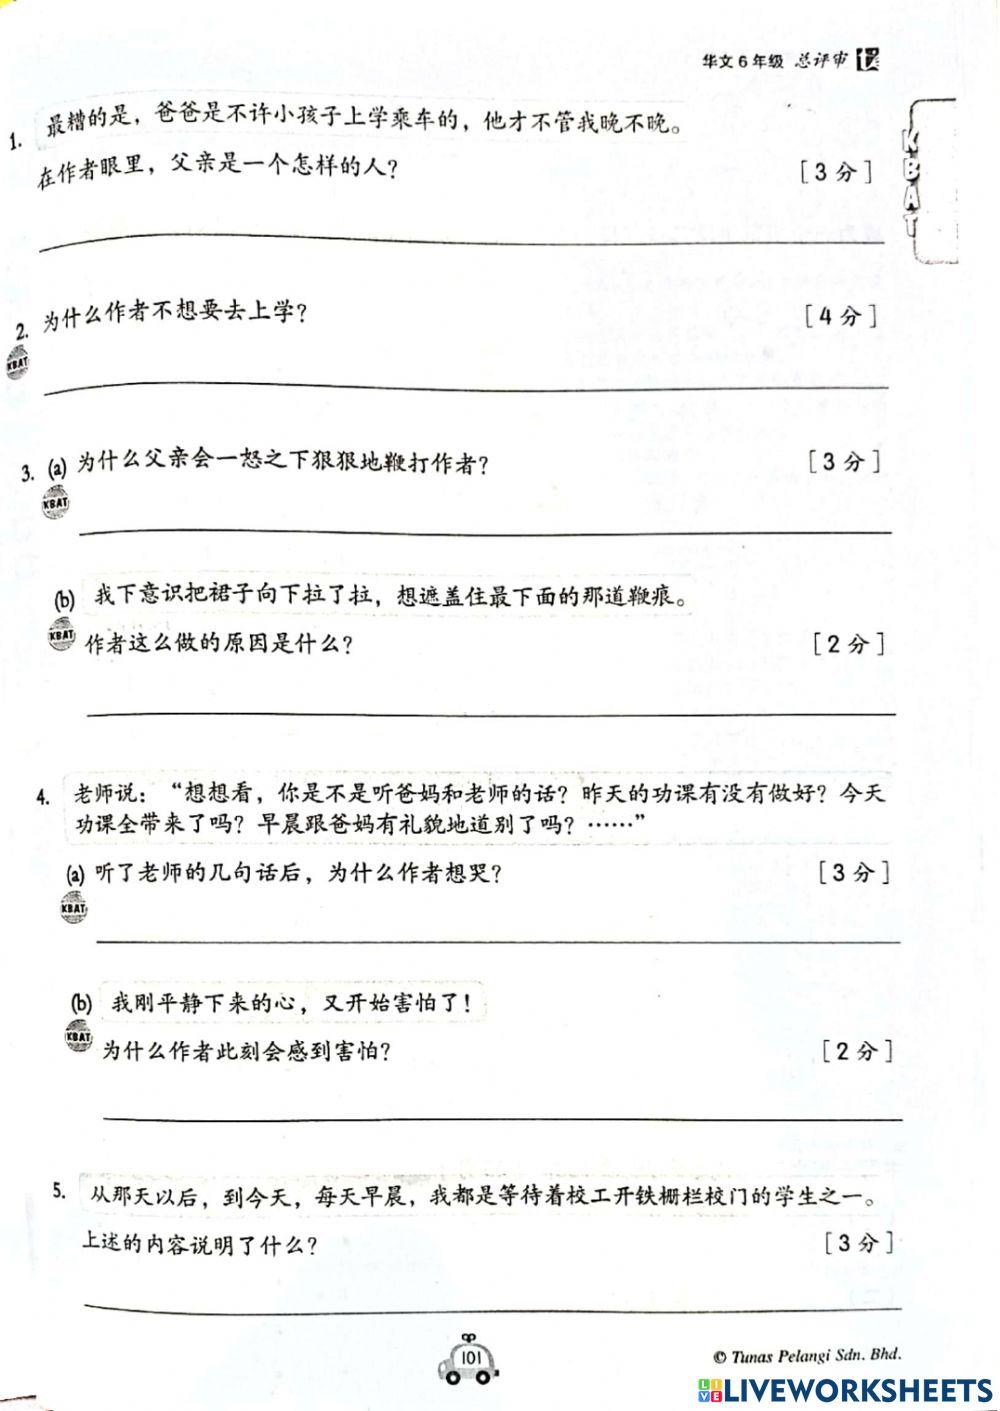 华文6年级 总评审
KBAT
1. 最糟的是，爸爸是不许小孩子上学乘车的，他才不管我晚不晚。
在作者眼里，父亲是一个怎样的人？ [3分]
2. 为什么作者不想要去上学？ [4分]
KBAT
3. (a) 为什么父亲会一怒之下狠狠地鞭打作者？ [3分]
KBAT
(b) 我下意识把裙子向下拉了拉，想遮盖住最下面的那道鞭痕。
KBAT
作者这么做的原因是什么？ [2分]
4. 老师说：“想想看，你是不是听爸妈和老师的话？昨天的功课有没有做好？今天
功课全带来了吗？早晨跟爸妈有礼貌地道别了吗？……”
(a) 听了老师的几句话后，为什么作者想哭？ [3分]
KBAT
(b) 我刚平静下来的心，又开始害怕了！
KBAT
为什么作者此刻会感到害怕？ [2分]
5. 从那天以后，到今天，每天早晨，我都是等待着校工开铁栅栏校门的学生之一。
上述的内容说明了什么？ [3分]
101
© Tunas Pelangi Sdn. Bhd.
LIVEWORKSHEETS